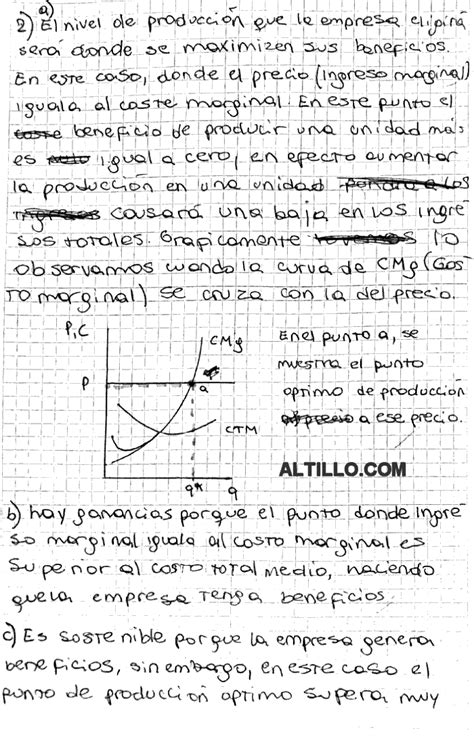 a)
2) El nivel de producción que la empresa elijirá
será donde se maximizen sus beneficios.
En este caso, donde el precio (Ingreso marginal)
iguala al coste marginal. En este punto el
beneficio de producir una unidad más
es igual a cero, en efecto aumentar
la producción en una unidad
causará una baja en los ingre
sos totales. Graficamente lo
observamos cuando la curva de CMg (Cos-
to marginal) se cruza con la del precio.
P,C
CMg
P
a
CTM
q*
q
En el punto a, se
muestra el punto
optimo de producción
a ese precio.
ALTILLO.COM
b) hay ganancias porque el punto donde Ingre
so marginal iguala al costo marginal es
superior al costo total medio, haciendo
que la empresa tenga beneficios.
c) Es sostenible porque la empresa genera
beneficios, sin embargo, en este caso el
punto de producción optimo supera muy